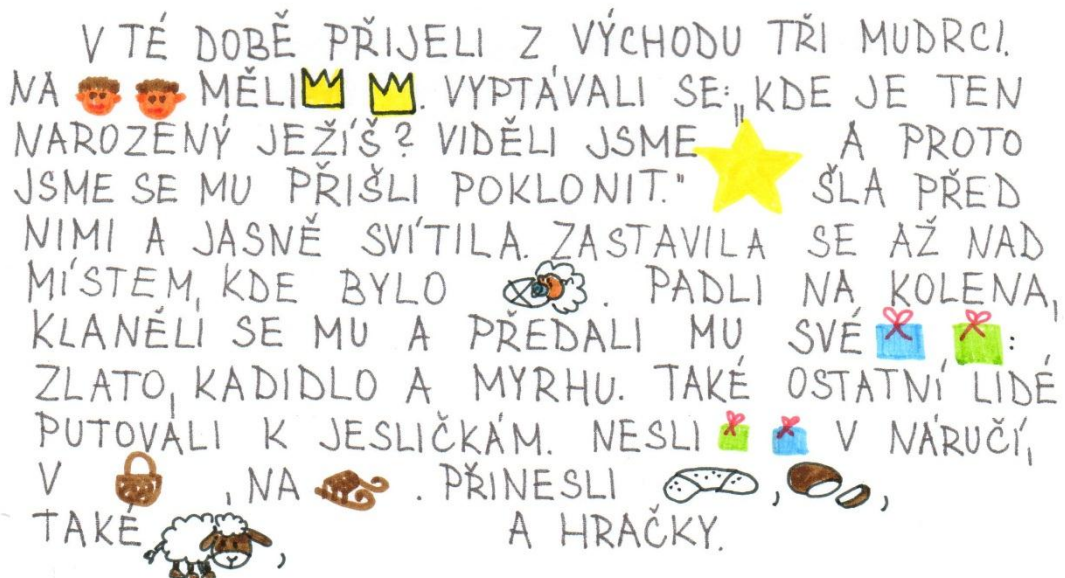 V TÉ DOBĚ PŘIJELI Z VÝCHODU TŘI MUDRCI.
NA MĚLI . VYPTÁVALI SE: „KDE JE TEN
NAROZENÝ JEŽÍŠ? VIDĚLI JSME A PROTO
JSME SE MU PŘIŠLI POKLONIT." ŠLA PŘED
NIMI A JASNĚ SVÍTILA. ZASTAVILA SE AŽ NAD
MÍSTEM, KDE BYLO . PADLI NA KOLENA,
KLANĚLI SE MU A PŘEDALI MU SVÉ :
ZLATO, KADIDLO A MYRHU. TAKÉ OSTATNÍ LIDÉ
PUTOVALI K JESLIČKÁM. NESLI V NÁRUČÍ,
V , NA . PŘINESLI , ,
TAKÉ , A HRAČKY.